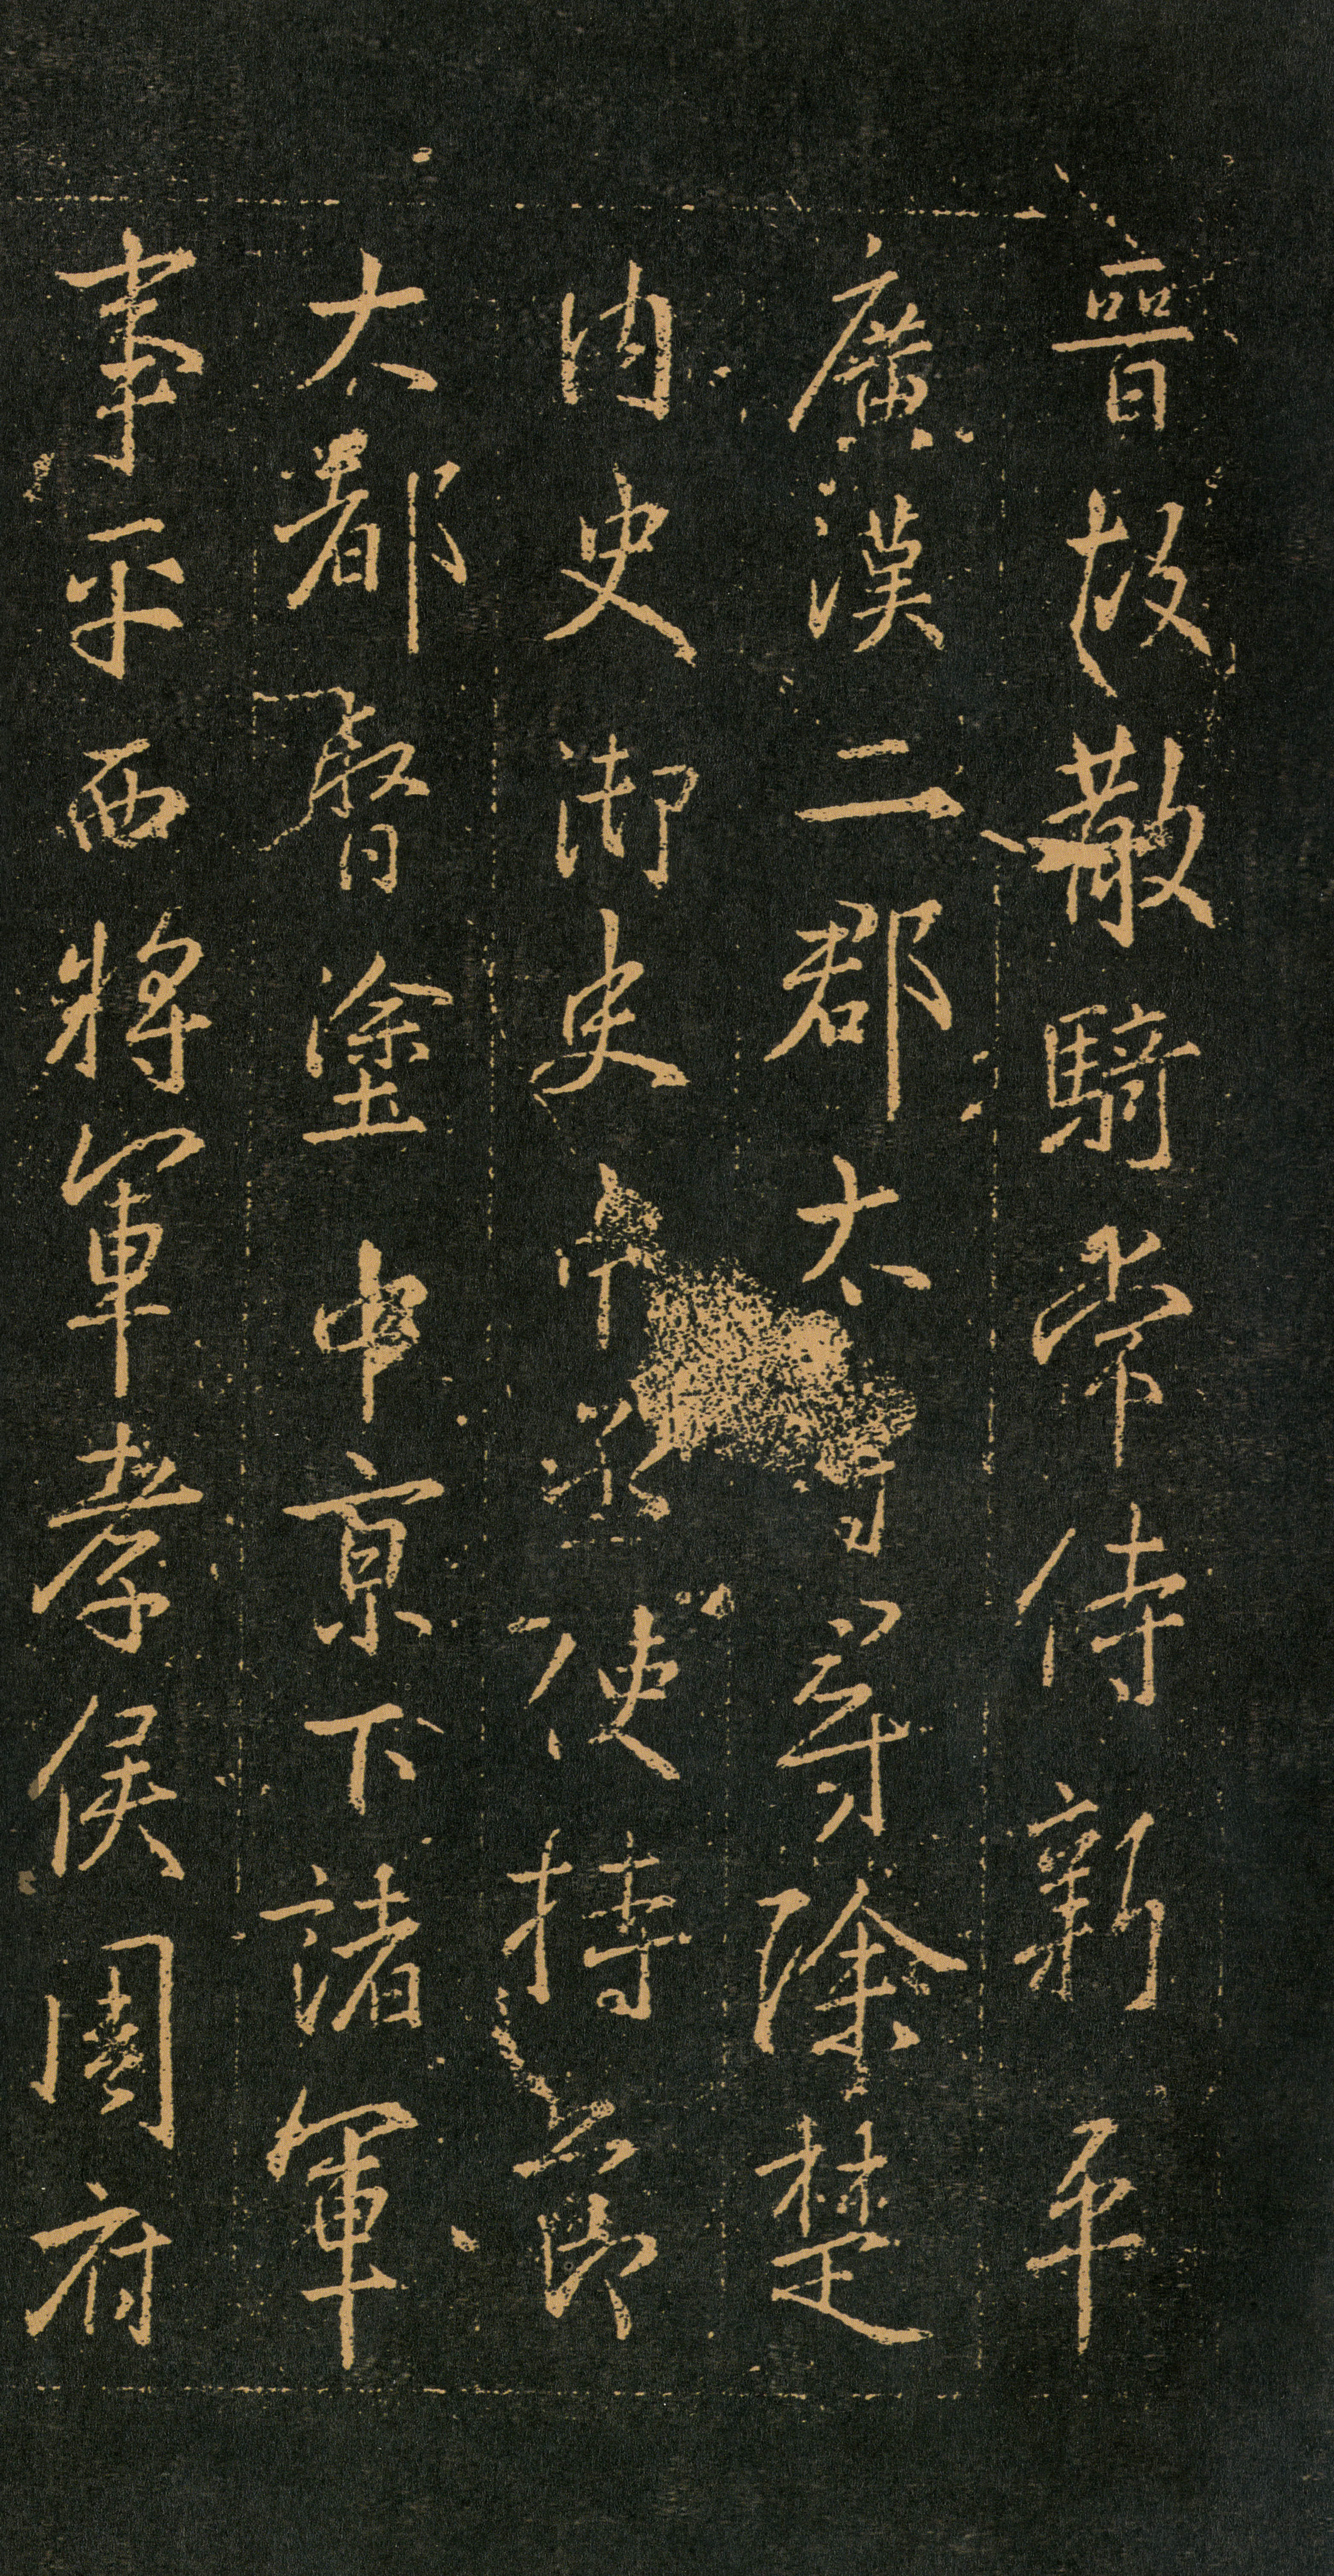 晉故散騎常侍新平
廣漢二郡太守尋除楚
內史御史中丞使持節
大都督塗中京下諸軍
事平西將軍孝侯周府